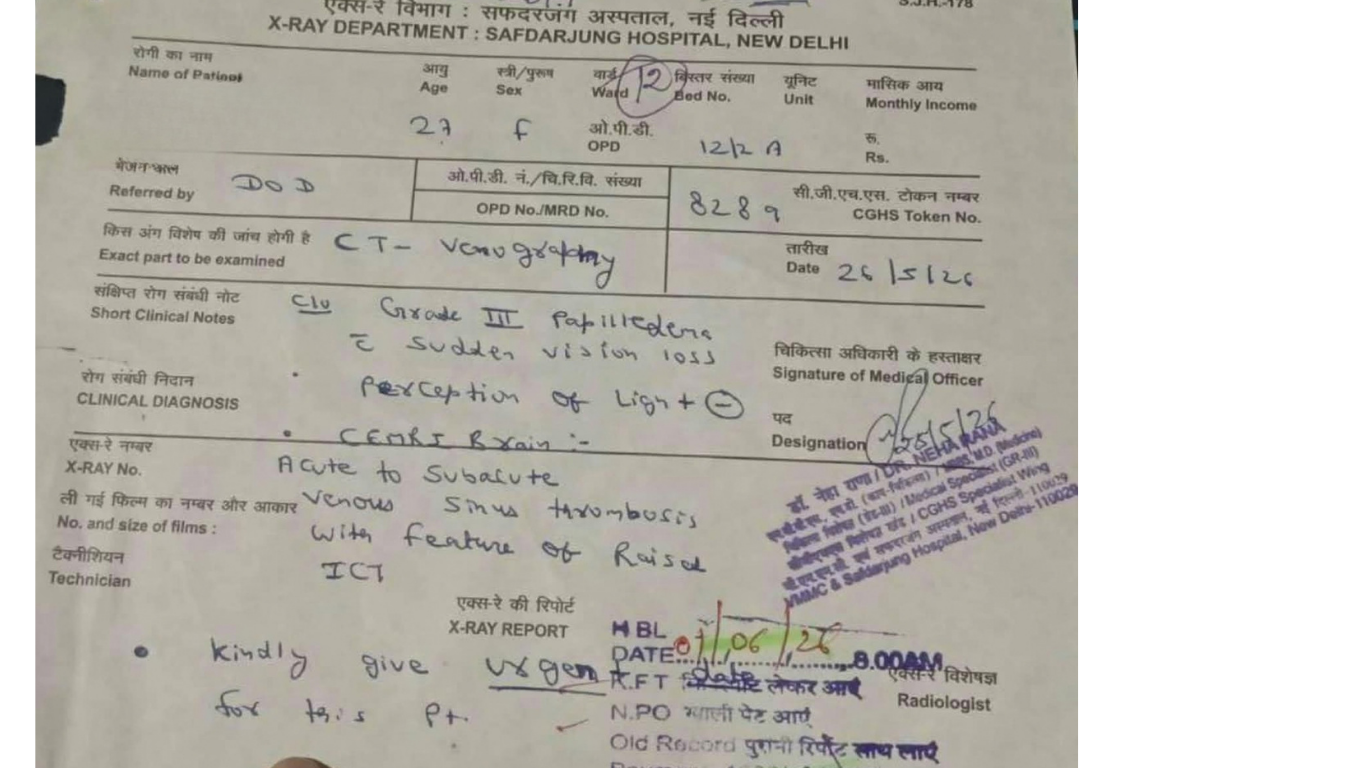 S.J.H.-178
एक्स-रे विभाग : सफदरजंग अस्पताल, नई दिल्ली
X-RAY DEPARTMENT : SAFDARJUNG HOSPITAL, NEW DELHI
रोगी का नाम आयु स्त्री/पुरूष वार्ड 12 बिस्तर संख्या यूनिट मासिक आय
Name of Patinet Age Sex Ward Bed No. Unit Monthly Income
27 F ओ.पी.डी. 12/2 A रु.
OPD Rs.
भेजने वाले DOD ओ.पी.डी. नं./चि.रि.वि. संख्या 8289 सी.जी.एच.एस. टोकन नम्बर
Referred by OPD No./MRD No. CGHS Token No.
किस अंग विशेष की जांच होगी है CT- Venography तारीख
Exact part to be examined Date 26/5/26
संक्षिप्त रोग संबंधी नोट Grade III Papilledema
Short Clinical Notes c̄ Sudden vision loss
चिकित्सा अधिकारी के हस्ताक्षर
Signature of Medical Officer
रोग संबंधी निदान • Perception of Light ⊖ पद
CLINICAL DIAGNOSIS Designation 25/5/26
एक्स-रे नम्बर • CEMRI Brain :-
X-RAY No. Acute to Subacute
ली गई फिल्म का नम्बर और आकार Venous Sinus thrombosis
No. and size of films : With feature of Raised
टैक्नीशियन ICT
Technician
डॉ. नेहा राणा / DR. NEHA RANA
/ Medical Specialist (GR-III)
/ CGHS Specialist Wing
VMMC & Safdarjung Hospital, New Delhi-110029
एक्स-रे की रिपोर्ट
X-RAY REPORT
HBL
DATE 01/06/26 8.00AM
• Kindly give urgent date
for this Pt.
एक्स-रे विशेषज्ञ
Radiologist
K.F.T लेकर आएं
N.PO खाली पेट आएं
Old Record पुरानी रिर्पोट साथ लाएं